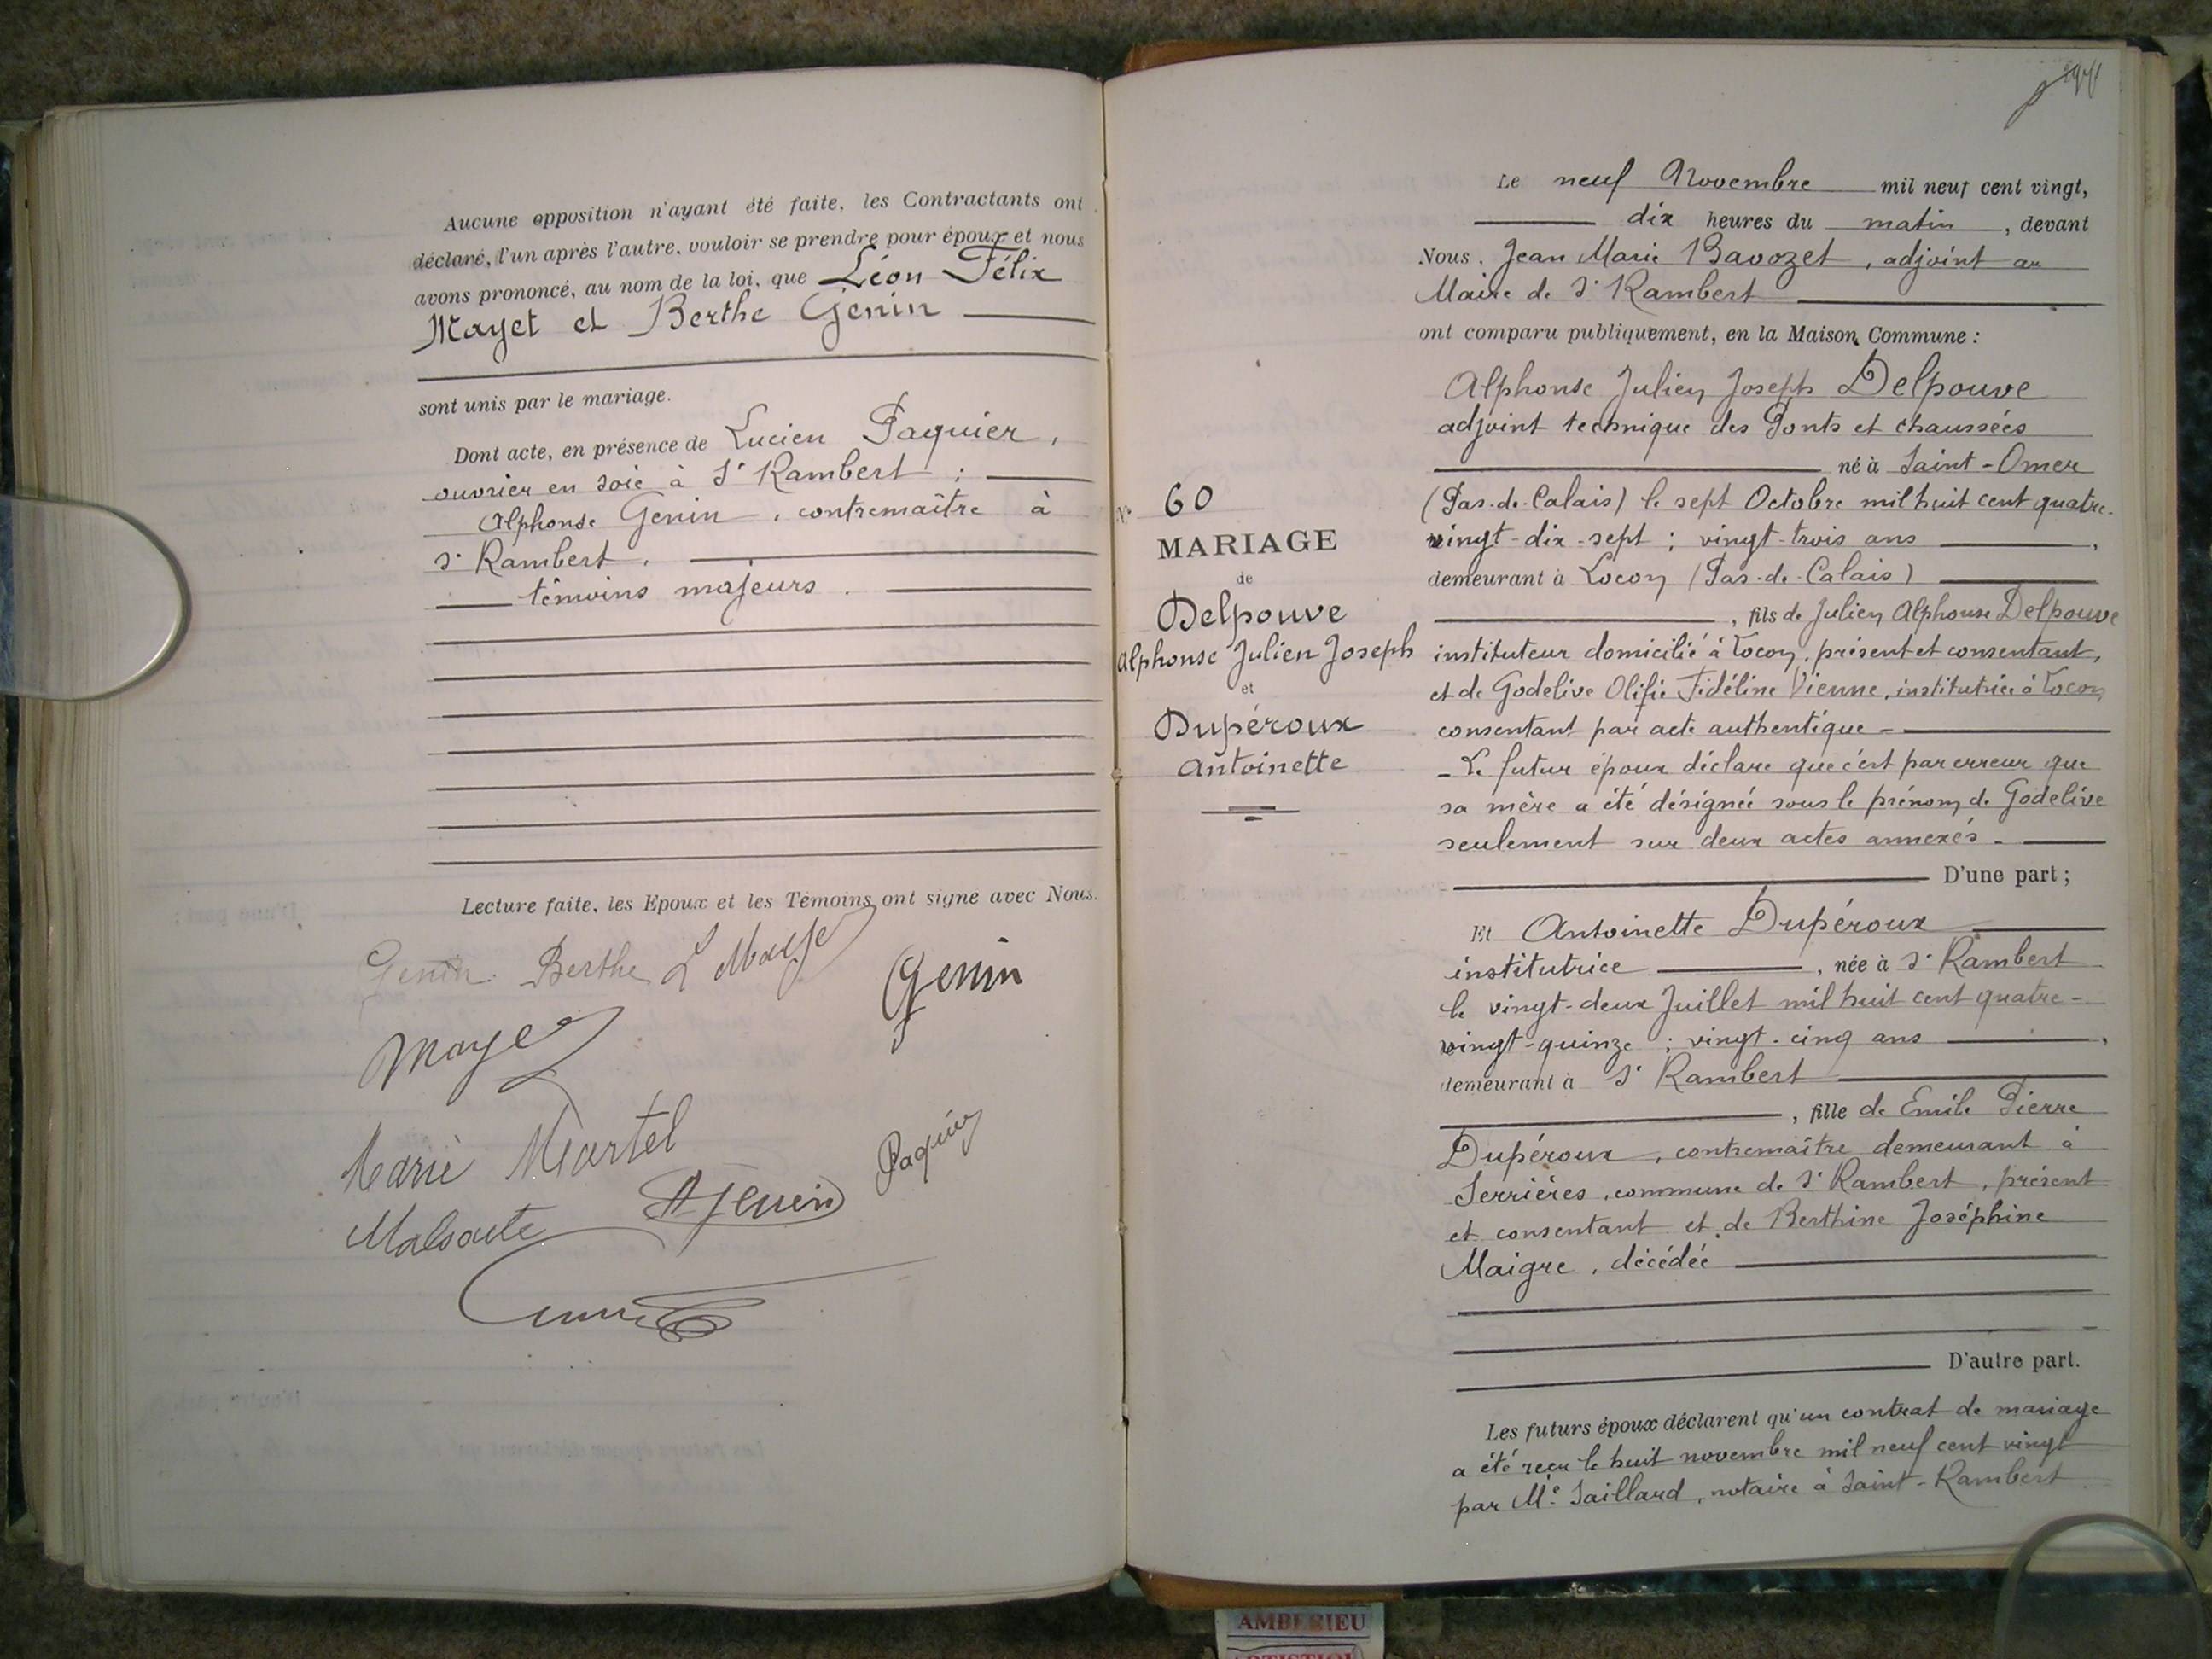 Aucune opposition n'ayant été faite, les Contractants ont
déclaré, l'un après l'autre, vouloir se prendre pour époux et nous
avons prononcé, au nom de la loi, que Léon Félix
Mayet et Berthe Genin
sont unis par le mariage.
Dont acte, en présence de Lucien Paquier,
ouvrier en soie à St Rambert ;
Alphonse Genin, contremaître à
St Rambert.
témoins majeurs.
Lecture faite, les Epoux et les Témoins ont signé avec Nous.
Genin Berthe L
Genin
Mayet
Marie Martel
Paquier
A Genin
N° 60
MARIAGE
de
Delpouve
Alphonse Julien Joseph
et
Dupéroux
Antoinette
Le neuf Novembre mil neuf cent vingt,
dix heures du matin, devant
Nous, Jean Marie Bavozet, adjoint au
Maire de St Rambert
ont comparu publiquement, en la Maison Commune :
Alphonse Julien Joseph Delpouve
adjoint technique des Ponts et chaussées
né à Saint-Omer
(Pas-de-Calais) le sept Octobre mil huit cent quatre-
vingt-dix-sept ; vingt-trois ans,
demeurant à Locon (Pas-de-Calais)
, fils de Julien Alphonse Delpouve
instituteur domicilié à Locon, présent et consentant,
et de Godelive Olifie Fidéline Vienne, institutrice à Locon
consentant par acte authentique -
- Le futur époux déclare que c'est par erreur que
sa mère a été désignée sous le prénom de Godelive
seulement sur deux actes annexés -
D'une part ;
Et Antoinette Dupéroux
institutrice, née à St Rambert
le vingt-deux Juillet mil huit cent quatre-
vingt-quinze ; vingt-cinq ans,
demeurant à St Rambert
, fille de Emile Pierre
Dupéroux, contremaître demeurant à
Serrières, commune de St Rambert, présent
et consentant et de Berthine Joséphine
Maigre, décédée
D'autre part.
Les futurs époux déclarent qu'un contrat de mariage
a été reçu le huit novembre mil neuf cent vingt
par Me Saillard, notaire à Saint-Rambert
AMBERIEU